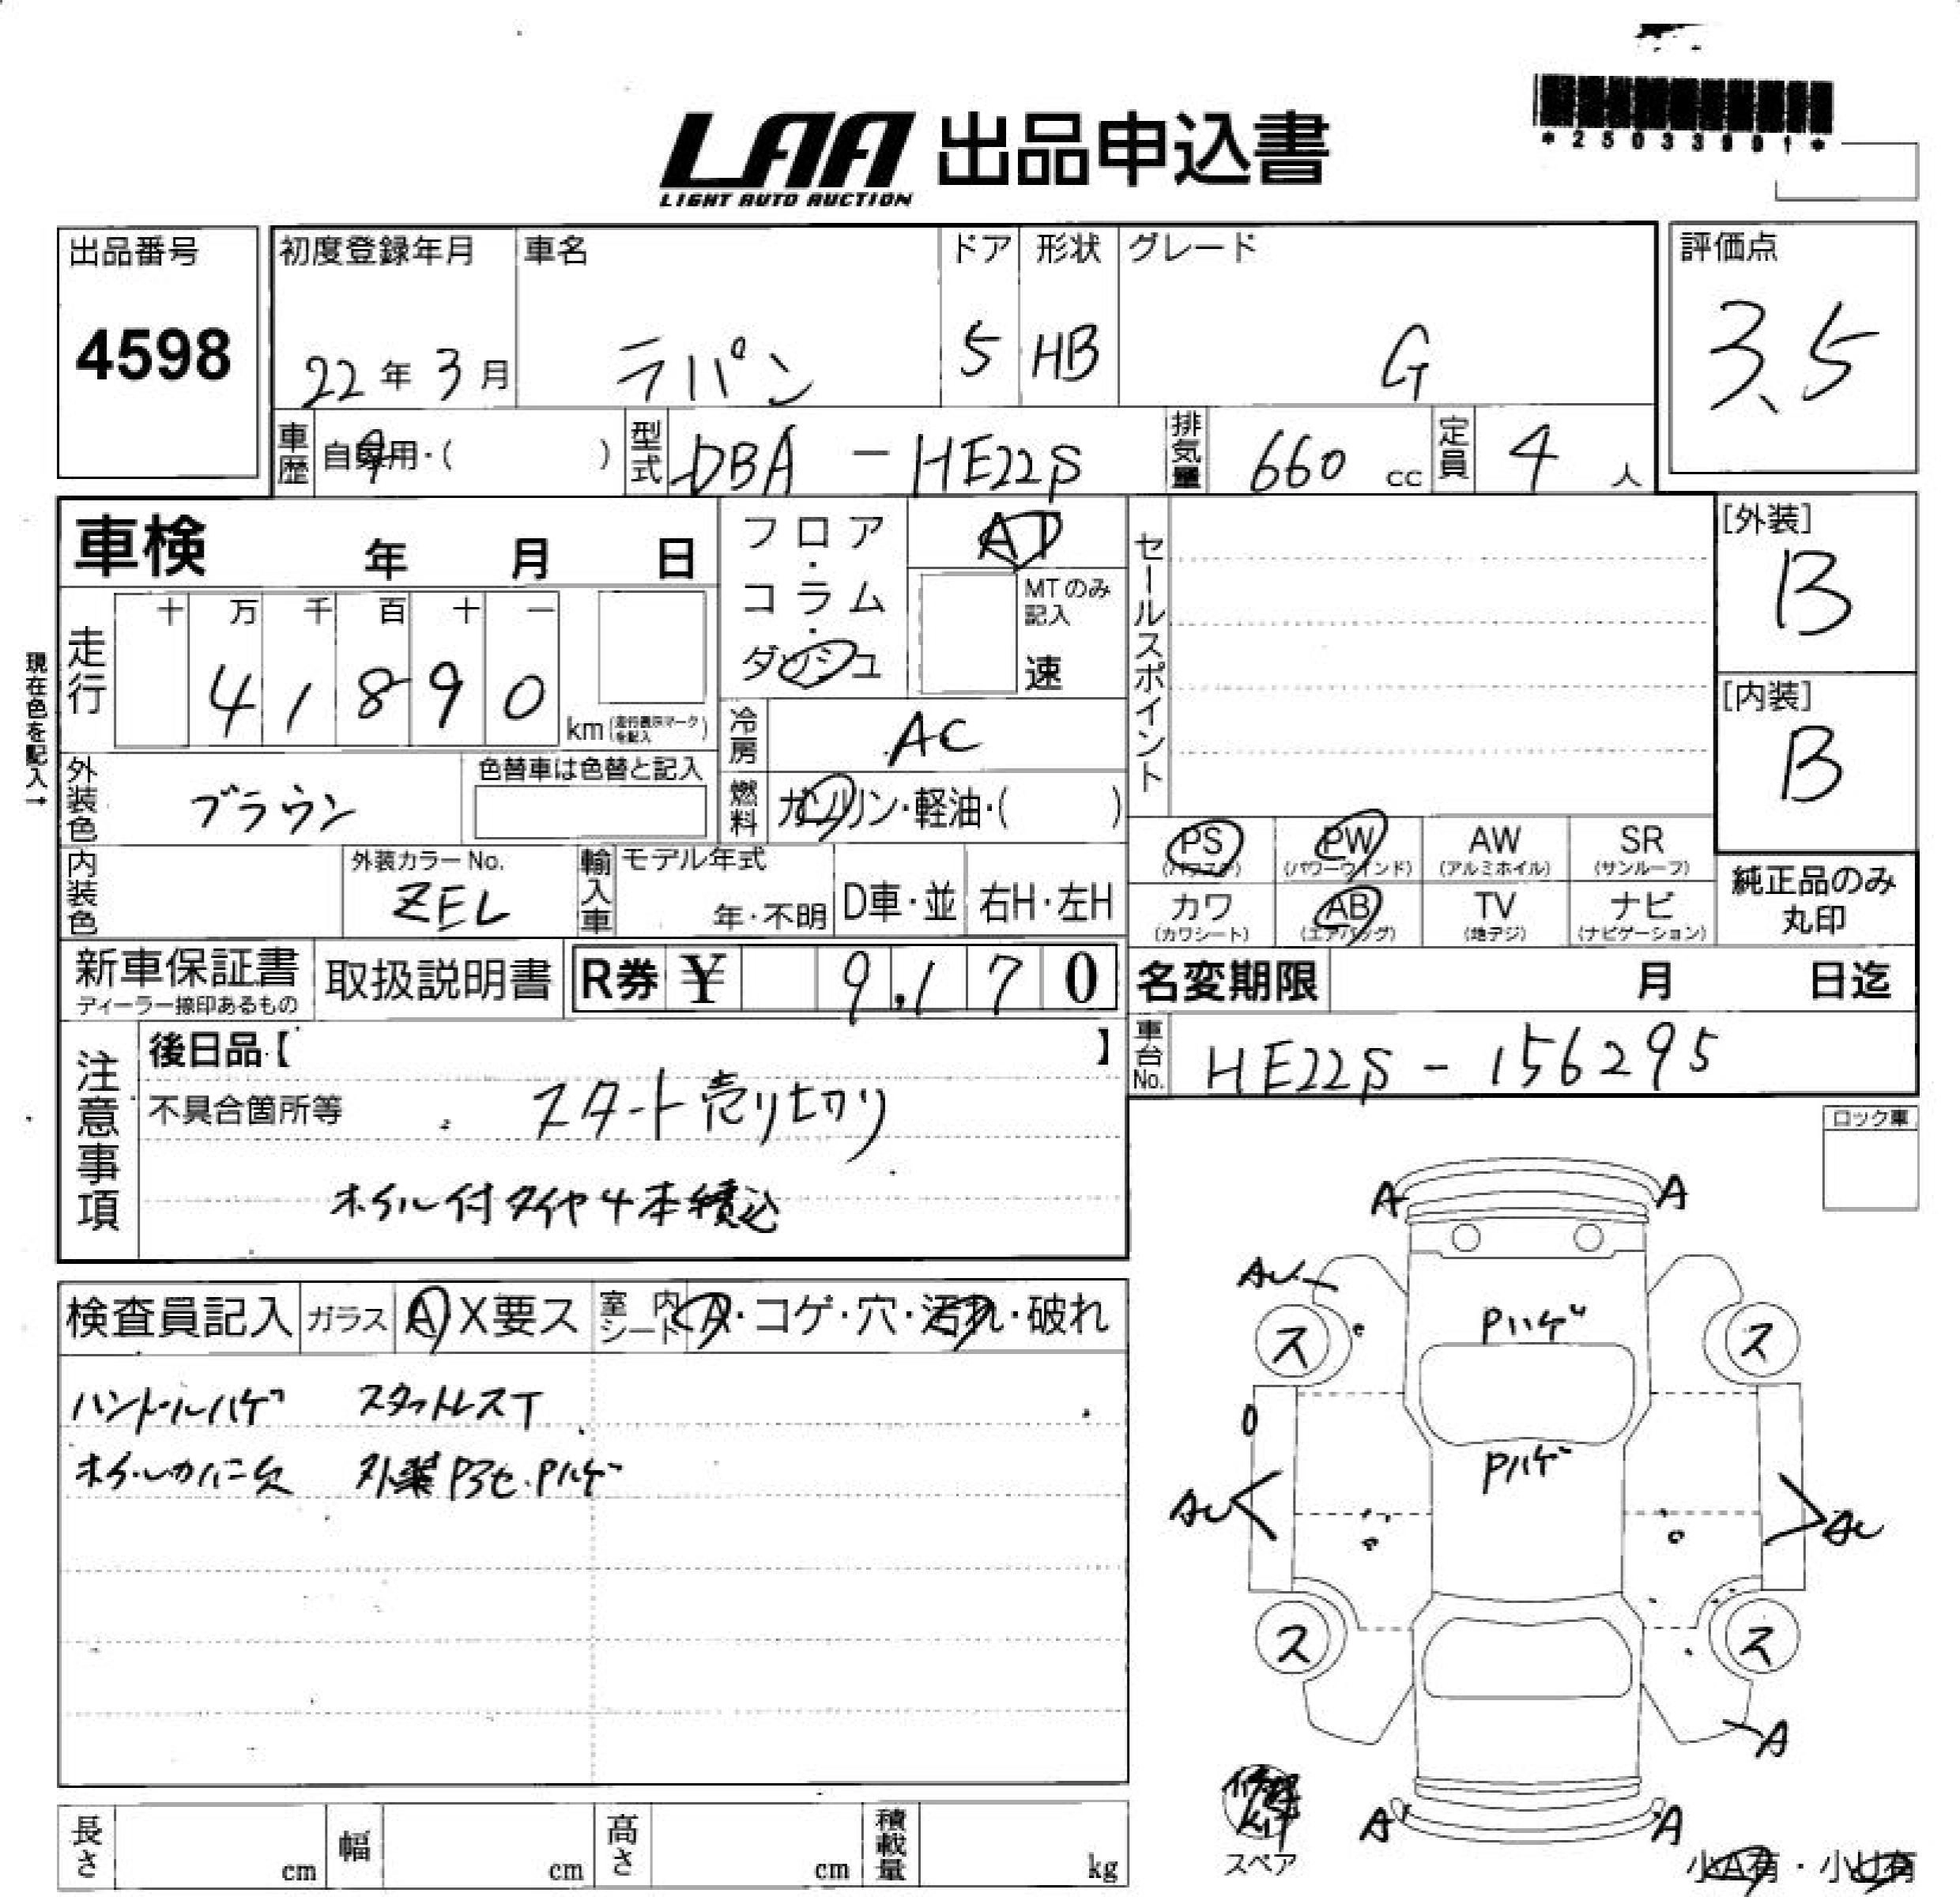 *25033901*
LAA 出品申込書
LIGHT AUTO AUCTION
出品番号
4598
初度登録年月
22年 3月
車名
ラパン
ドア
5
形状
HB
グレード
G
評価点
3.5
車歴 自家用・( )
型式 DBA - HE22S
排気量 660 cc
定員 4 人
車検 年 月 日
フロア・コラム・ダッシュ
AT
MTのみ記入
速
セールスポイント
[外装]
B
[内装]
B
現在色を記入→
走行 十 万 千 百 十 一
4 1 8 9 0
km(走行表示マークを記入)
冷房 AC
外装色 ブラウン
色替車は色替と記入
燃料 ガソリン・軽油・( )
PS (パワステ)
PW (パワーウインド)
AW (アルミホイル)
SR (サンルーフ)
内装色
外装カラーNo.
ZEL
輸入車 モデル年式
年・不明
D車・並
右H・左H
カワ (カワシート)
AB (エアバッグ)
TV (地デジ)
ナビ (ナビゲーション)
純正品のみ丸印
新車保証書
ディーラー捺印あるもの
取扱説明書
R券 ¥ 9,170
名変期限 月 日迄
車台No. HE22S - 156295
注意事項
後日品【 】
不具合箇所等 スタート売り切り
ホイル付タイヤ4本積込
ロック車
検査員記入
ガラス A X 要ス
室内シート A・コゲ・穴・汚れ・破れ
ハンドルハゲ スタットレスT
ホイールカバー欠 外装Pアセ・Pハゲ
A A
AU
ス ス
Pハゲ
Pハゲ
AU AU
ス ス
A
A A
スペア
小A有・小U有
長さ cm
幅 cm
高さ cm
積載量 kg